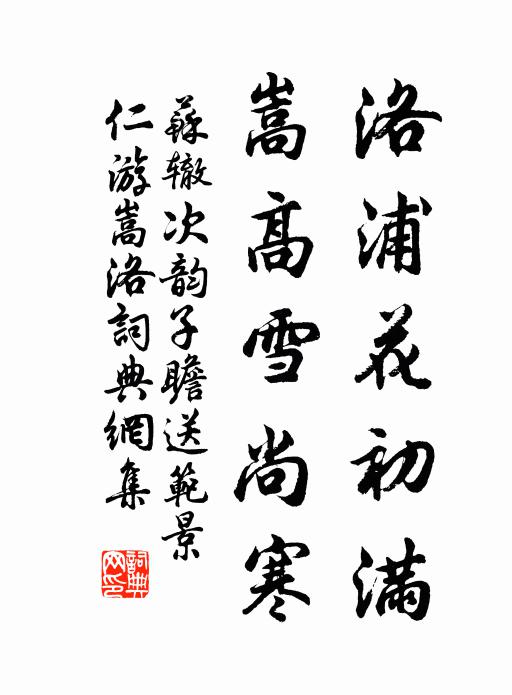 洛浦花初滿
嵩高雪尚寒
蘇轍次韵子瞻送範景
仁游嵩洛詞典網集
詞典网印